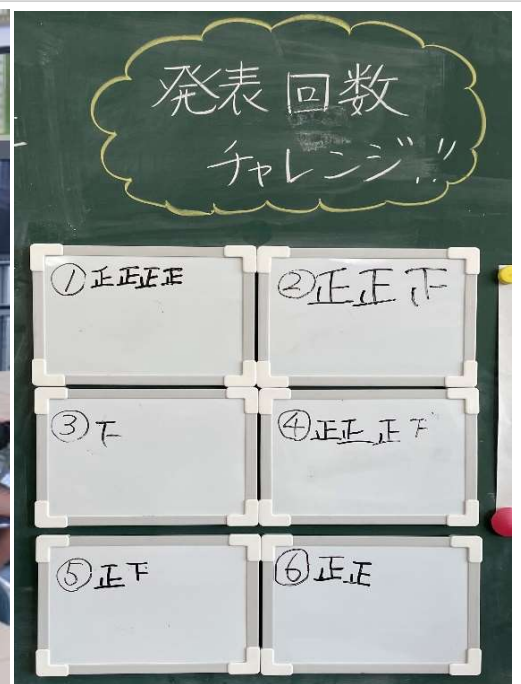 発表回数
チャレンジ!!
①正正正正
②正正下
③下
④正正正下
⑤正下
⑥正正